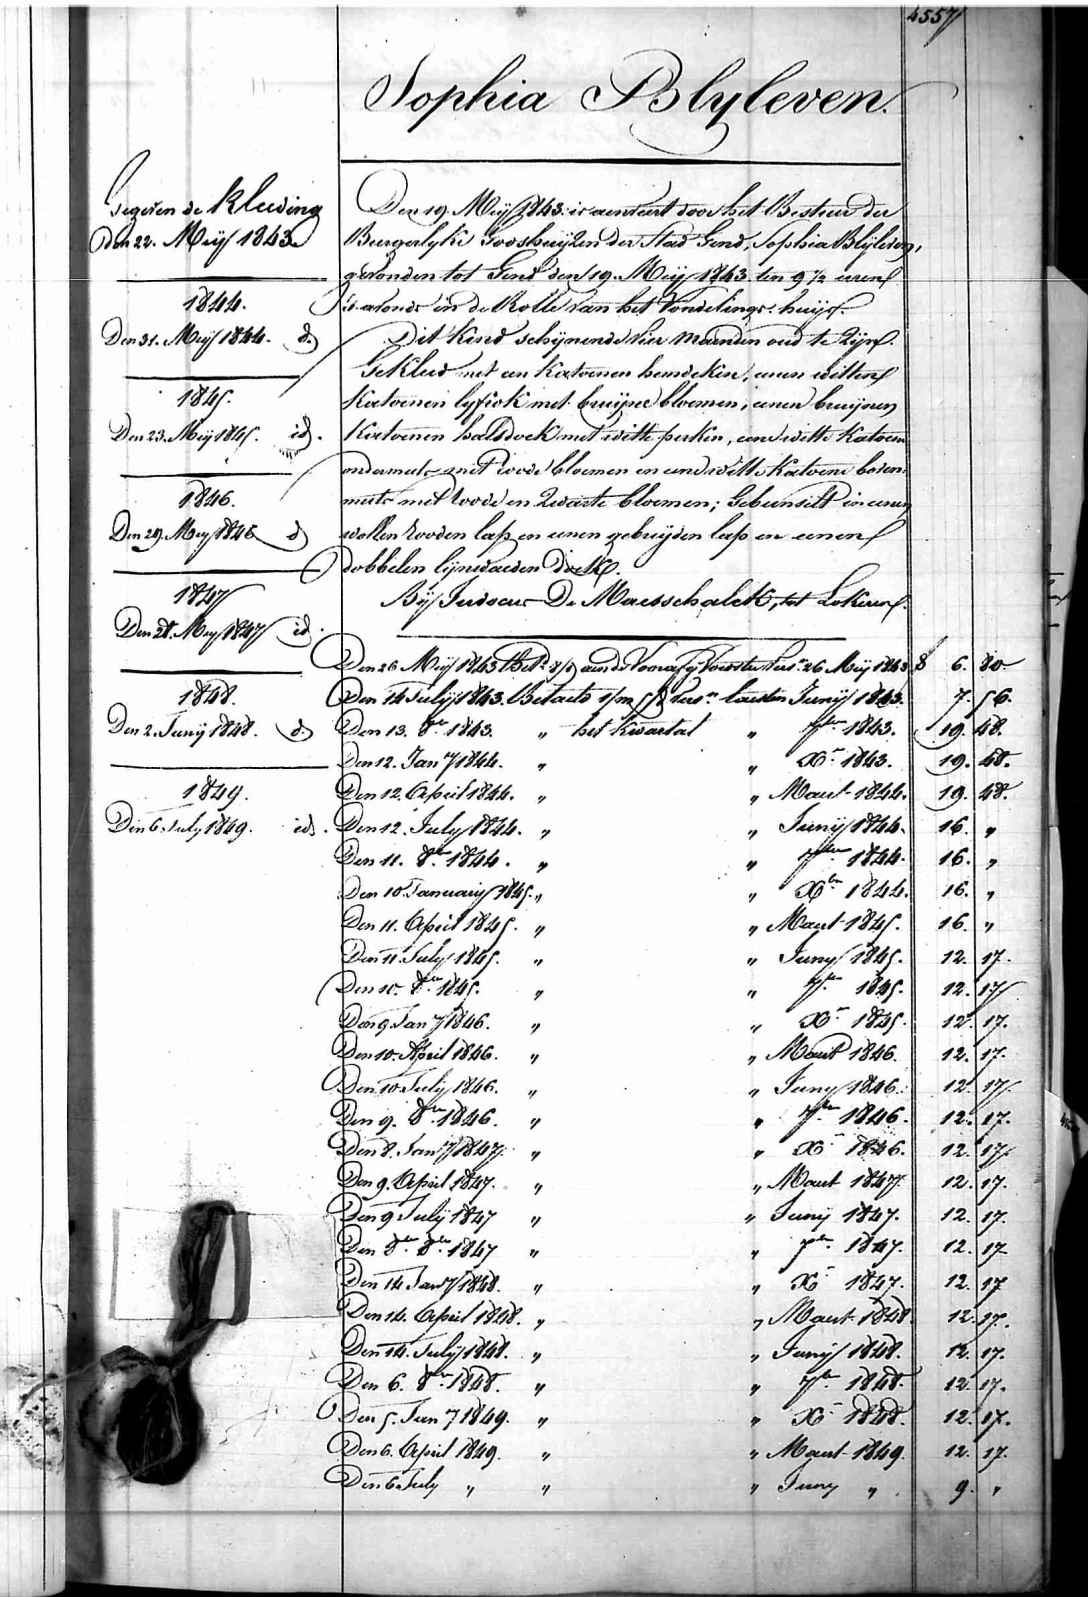 4557
Sophia Blyleven.
Gegeven de kleeding
den 22. Meij 1843
1844.
Den 31. Meij 1844. id.
1845.
Den 23. Meij 1845. id.
1846.
Den 29. Meij 1846 id
1847
Den 28. Mey 1847 id.
1848.
Den 2. Junij 1848. id.
1849.
Den 6. July 1849. id.
Den 19. Meij 1843. is aenveert door het Bestuer der
Burgerlyke Godshuijzen der Stad Gend, Sophia Blijleven,
gevonden tot Gend den 19. Meij 1843. ten 9 1/2 uren
's avonds in de Rolle van het Vondelings-huijs.
Dit kind schijnende vier maenden oud te zijn.
Gekleed met een katoenen hemdeken, eenen witten
katoenen lyfrok met bruijne bloemen, eenen bruijnen
katoenen halsdoek met witte perken, eene witte katoene
ondermuts met roode bloemen en eene witte katoene boven-
muts met roode en zwarte bloemen; Gebunselt in eenen
wollen rooden lap en eenen gebreijden lap en eenen
dobbelen lijnwaeden doek.
Bij Judocus De Maesschalck, tot Lokeren.
Den 26 Meij 1843 26 Meij 1843 6. 80
Den 14 July 1843. Betaelt Junij 1843. 7. 56.
Den 13. 8er 1843. " het kwartael " 7ber 1843. 19. 48.
Den 12. Jany 1844. " " Xr 1843. 19. 48.
Den 12. April 1844. " " Maert 1844. 19. 48.
Den 12. July 1844. " " Junij 1844. 16. "
Den 11. 8er 1844. " " 7ber 1844. 16. "
Den 10. January 1845. " " Xber 1844. 16. "
Den 11. April 1845. " " Maert 1845. 16. "
Den 11. July 1845. " " Juny 1845. 12. 17.
Den 10. 8er 1845. " " 7ber 1845. 12. 17
Den 9. Jany 1846. " " Xr 1845. 12. 17.
Den 10. April 1846. " " Maert 1846. 12. 17.
Den 10. July 1846. " " Juny 1846. 12. 17.
Den 9. 8er 1846. " " 7ber 1846. 12. 17.
Den 8. Jany 1847. " " Xr 1846. 12. 17.
Den 9. April 1847. " " Maert 1847. 12. 17.
Den 9 July 1847 " " Junij 1847. 12. 17.
Den 8er 8er 1847 " " 7ber 1847. 12. 17
Den 14 Jany 1848. " " Xr 1847. 12. 17
Den 14. April 1848. " " Maert 1848. 12. 17.
Den 14. July 1848. " " Junij 1848. 12. 17.
Den 6. 8er 1848. " " 7ber 1848. 12. 17.
Den 5. Jany 1849. " " Xr 1848. 12. 17.
Den 6. April 1849. " " Maert 1849. 12. 17.
Den 6 July " " " Juny " 9. "